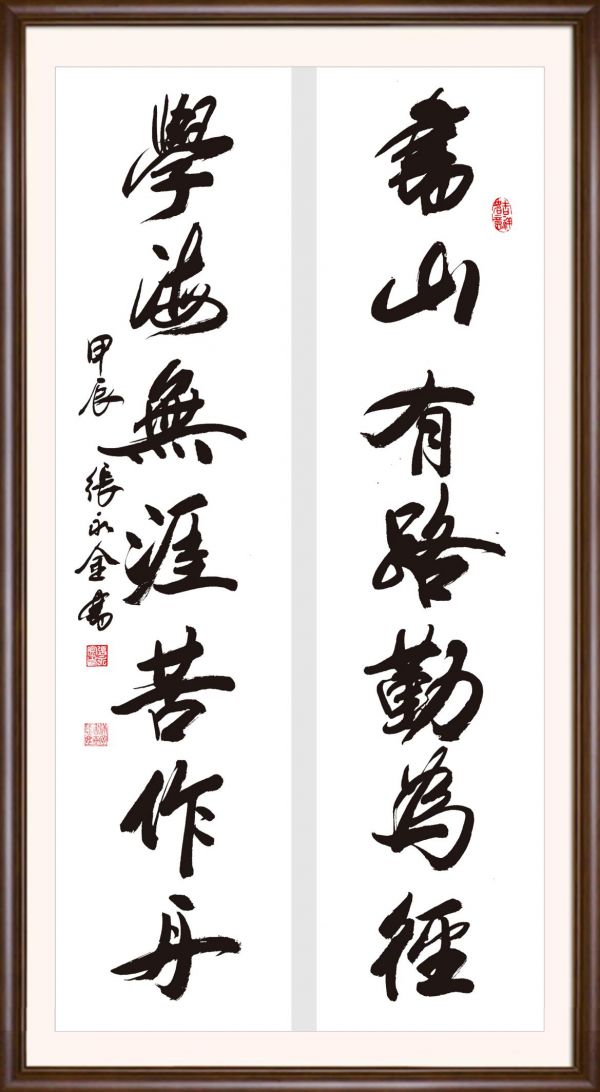 書山有路勤為徑
學海無涯苦作舟
甲辰 張永金書